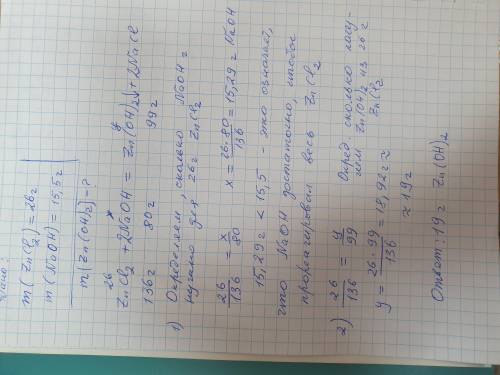 Дано:
m(ZnCl₂) = 26г
m(NaOH) = 15,5г
m[Zn(OH)₂] = ?
26 x y
ZnCl₂ + 2NaOH = Zn(OH)₂↓ + 2NaCl
136г 80г 99г
1) Определяем, сколько NaOH г
нужно для 26г ZnCl₂
26/136 = x/80 x = 26·80/136 = 15,29г NaOH
15,29г < 15,5 - это означает,
что NaOH достаточно, чтобы
прореагировал весь ZnCl₂
2) 26/136 = y/99 Опред сколько полу-
чим Zn(OH)₂ из 26г
ZnCl₂
y = 26·99/136 = 18,92г ≈
≈ 19г
Ответ: 19г Zn(OH)₂